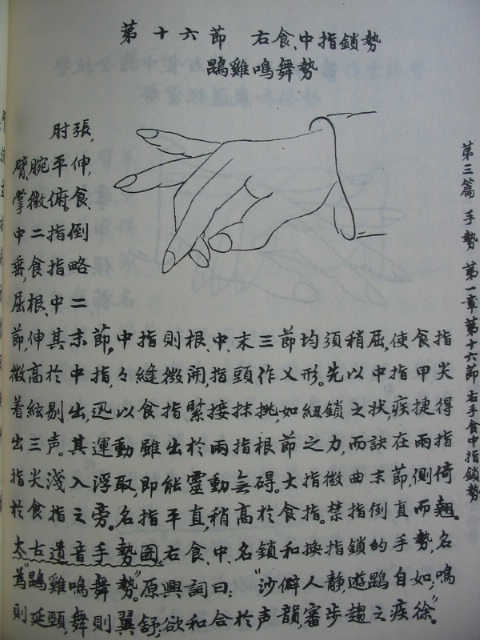 第十六節 右食、中指鎖勢
鶤雞鳴舞勢
肘張,
臂腕平伸,
掌微俯。食、
中二指倒
垂,食指略
屈根、中二
節,伸其末節,中指則根、中、末三節均須稍屈,使食指
微高於中指,々縫微闲,指頭作乂形。先以中指甲尖
着絃剔出,迅以食指緊接抹挑,如紐鎖之状,疾捷得
出三声。其運動雖出於兩指根節之力,而訣在兩指
指尖浅入浮取,即能靈動無碍。大指微曲末節,側倚
於食指之旁,名指平直,稍高於食指。禁指倒直而翹。
太古遺音手勢圖右食、中名鎖和換指鎖的手勢,名
為"鶤雞鳴舞勢"。原興詞曰:"沙僻人静,遊鶤自如,鳴
則延頸,舞則翼舒,欲和合於声韻,審步趨之疾徐"。
第三篇 手勢 第一章 第十六節 右手食中指鎖勢